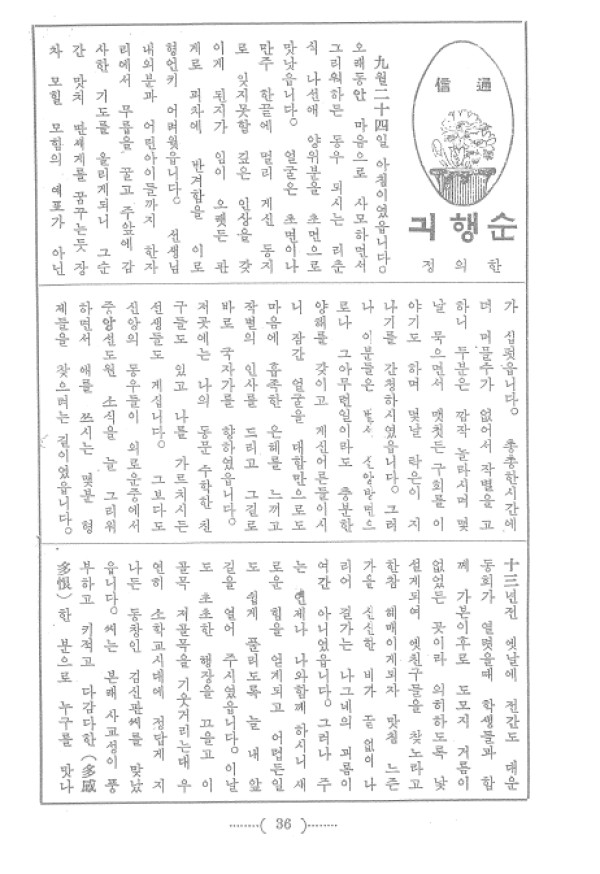 通信
순행긔
한의정
九월二十四일 아침이였읍니다。
오래동안 마음으로 사모하면서
그리워하든 동우 되시는 리춘
식 나선애 양위분을 초면으로
맛낫읍니다。 얼굴은 초면이나
만주 한끝에 멀리 게신 동지
로 잊지못할 깊은 인상을 갖
이게 된지가 임이 으랫든 관
게로 피차에 반겨함을 이로
형언키 어려웟읍니다。 선생님
내외분과 어린아이들까지 한자
리에서 무릅을 꿀고 주앞에 감
사한 기도를 올리게되니 그순
간 맛치 딴쎄게를 꿈꾸는듯 장
차 모힐 모험의 예포가 아닌
가 십헛읍니다。 총총한시간에
더 머물수가 없어서 작별을 고
하니 두분은 깜작 놀라시며 몇
날 묵으면서 맷칫든 구회를 이
야기도 하며 몇날 락은이 지
나기를 간청하시였읍니다。그러
나 이분들은 벌서 신앙방면으
로나 그아무런일이라도 충분한
양해를 갖이고 게신어른들이시
니 잠간 얼굴을 대함만으로도
마음에 흡족한 은혜를 느끼고
작별의 인사를 드리고 그길로
바로 국자가를 향하였읍니다。
저곳에는 나의 동문수학한 친
구들도 있고 나를 가르치시든
선생들도 게십니다。 그보다도
신앙의 동우들이 외로운중에서
중앙선도원 소식을 늘 그리워
하면서 애를 쓰시는 몇분 형
제들을 찾으려는 길이였읍니다。
十三년전 옛날에 전간도 대운
동회가 열렷을때 학생들과 함
께 가본이후로 도모지 거름이
없었든 곳이라 의히하도록 낯
설게되여 옛친구들을 찾노라고
한참 헤매이게되자 맛침 느즌
가을 신신한 비가 끝없이 나
리어 걸가는 나그네의 괴롬이
여간 아니였읍니다。그러나 주
는 언제나 나와함께 하시니 새
로운 힘을 얻게되고 어렵든일
도 쉽게 풀리도록 늘 내 앞
길을 열어 주시였읍니다。이날
도 초초한 행장을 끄을고 이
골목 저골목을 기웃거리는대 우
연히 소학교시대에 정답게 지
나든 동창인 김신판씨를 맞났
읍니다。씨는 본래 사교성이 풍
부하고 키적고 다감다한(多感
多恨)한 분으로 누구를 맞나
( 36 )